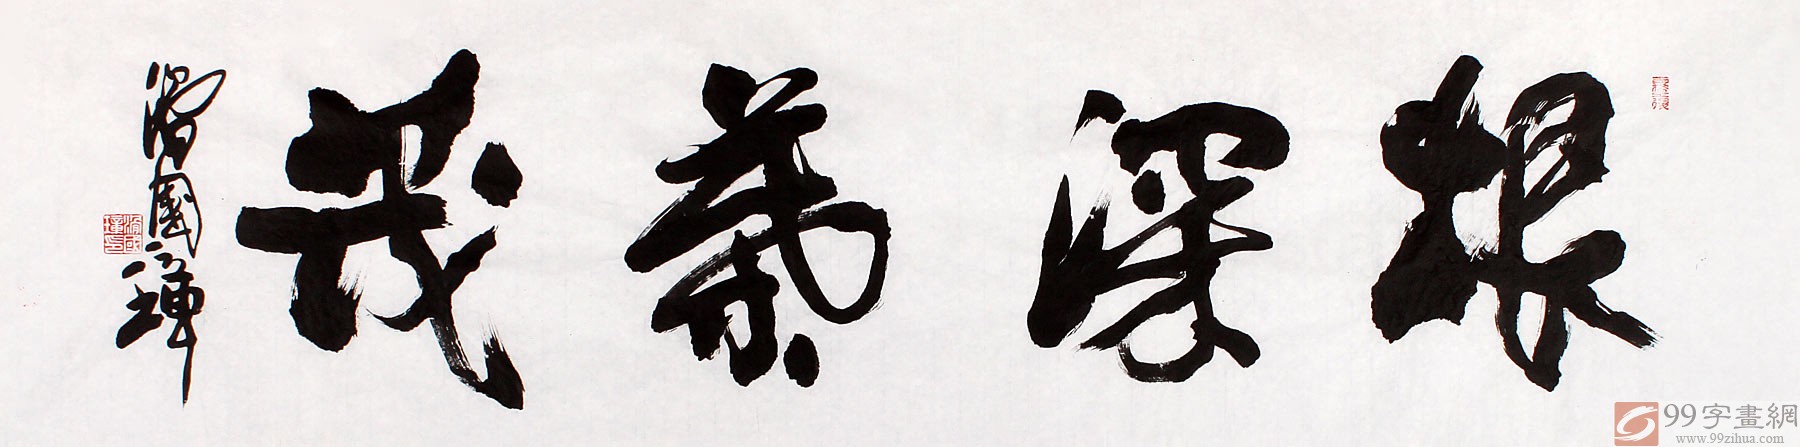 根深葉茂
99字畫網
www.99zihua.com